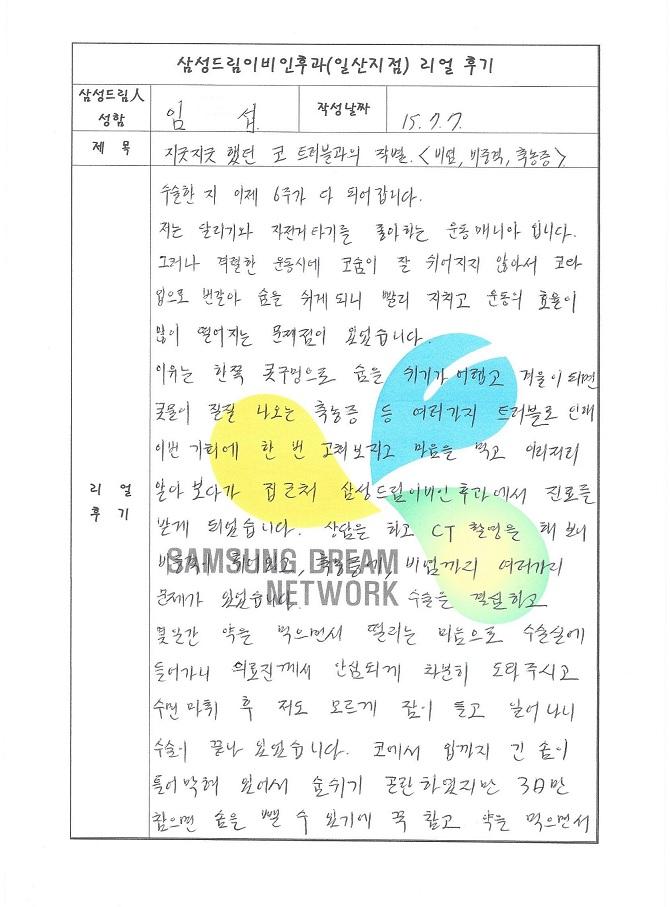 삼성드림이비인후과(일산지점) 리얼 후기
삼성드림人 성함
임 섭
작성날짜
15.7.7.
제 목
지긋지긋 했던 코 트러블과의 작별. <비염, 비중격, 축농증>
리 얼 후 기
수술한 지 이제 6주가 다 되어갑니다.
저는 달리기와 자전거타기를 좋아하는 운동매니아 입니다.
그러나 격렬한 운동시에 코숨이 잘 쉬어지지 않아서 코와
입으로 번갈아 숨을 쉬게 되니 빨리 지치고 운동의 효율이
많이 떨어지는 문제점이 있었습니다.
이유는 한쪽 콧구멍으로 숨을 쉬기가 어렵고 겨울이 되면
콧물이 질질 나오는 축농증 등 여러가지 트러블로 인해
이번 기회에 한 번 고쳐보자고 마음을 먹고 이리저리
알아 보다가 집근처 삼성드림이비인후과에서 진료를
받게 되었습니다. 상담을 하고 CT 촬영을 해 보니
휘어있고, 축농증에, 비염까지 여러가지
문제가 있었습니다. 수술을 결심하고
몇일간 약을 먹으면서 떨리는 마음으로 수술실에
들어가니 의료진께서 안심되게 차분히 도와주시고
수면마취 후 저도 모르게 잠이 들고 일어나니
수술이 끝나 있었습니다. 코에서 입까지 긴 솜이
틀어박혀 있어서 숨쉬기 곤란하였지만 3일만
참으면 솜을 뺄 수 있기에 꾹 참고 약을 먹으면서
SAMSUNG DREAM
NETWORK